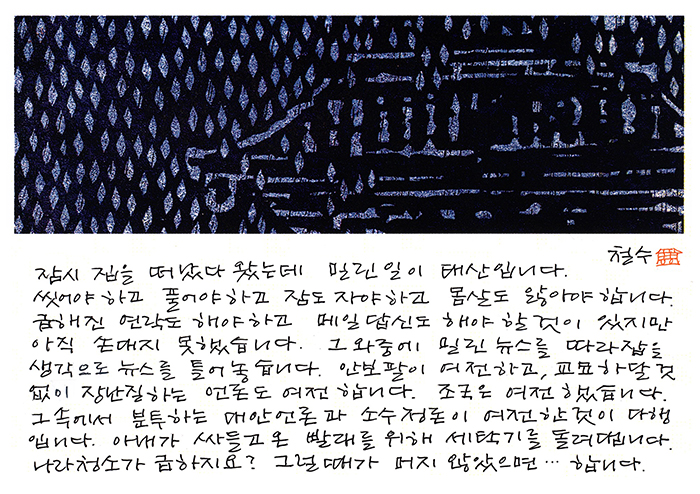 철수
잠시 집을 떠났다 왔는데 밀린 일이 태산입니다.
씻어야 하고 풀어야 하고 잠도 자야하고 몸살도 앓아야 합니다.
급해진 연락도 해야하고 메일 답신도 해야 할 것이 있지만
아직 손대지 못했습니다. 그 와중에 밀린 뉴스를 따라잡을
생각으로 뉴스를 틀어 놓습니다. 안보팔이 여전하고, 교묘하달 것
없이 장난질하는 언론도 여전 합니다. 조국은 여전했습니다.
그 속에서 분투하는 대안언론과 소수정론이 여전한 것이 다행
입니다. 아내가 싸들고 온 빨래를 위해 세탁기를 돌려댑니다.
나라청소가 급하지요? 그럴 때가 머지 않았으면… 합니다.